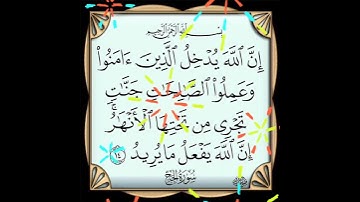 بسم الله الرحمن الرحيم
إِنَّ ٱللَّهَ يُدْخِلُ ٱلَّذِينَ ءَامَنُوا۟
وَعَمِلُوا۟ ٱلصَّٰلِحَٰتِ جَنَّٰتٍ
تَجْرِى مِن تَحْتِهَا ٱلْأَنْهَٰرُ ۚ
إِنَّ ٱللَّهَ يَفْعَلُ مَا يُرِيدُ ١٤
سُورَةُ الحَجّ